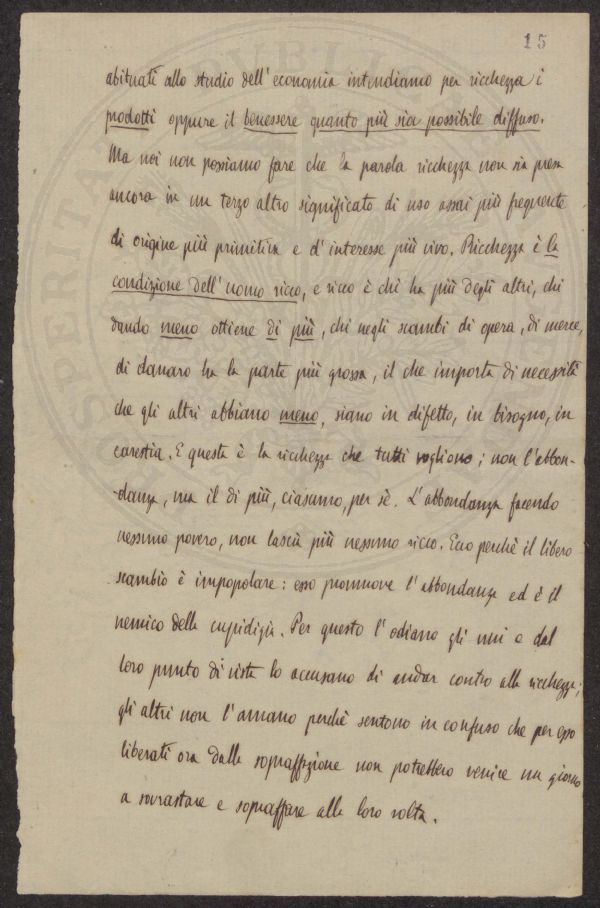 15
abituati allo studio dell'economia intendiamo per ricchezza i
prodotti oppure il benessere quanto più sia possibile diffuso.
Ma noi non possiamo fare che la parola ricchezza non sia presa
ancora in un terzo altro significato di uso assai più frequente
di origine più primitiva e d'interesse più vivo. Ricchezza è la
condizione dell'uomo ricco, e ricco è chi ha più degli altri, chi
dando meno ottiene di più, chi negli scambi di opera, di merce,
di danaro ha la parte più grossa, il che importa di necessità
che gli altri abbiano meno, siano in difetto, in bisogno, in
carestia. E questa è la ricchezza che tutti vogliono; non l'abbon-
-danza, ma il di più, ciascuno, per sè. L'abbondanza facendo
nessuno povero, non lascia più nessuno ricco. Ecco perchè il libero
scambio è impopolare: esso promuove l'abbondanza ed è il
nemico della cupidigia. Per questo l'odiano gli uni e dal
loro punto di vista lo accusano di andar contro alla ricchezza;
gli altri non l'amano perchè sentono in confuso che per esso
liberati ora dalla sopraffazione non potrebbero venire un giorno
a sovrastare e sopraffare alla loro volta.